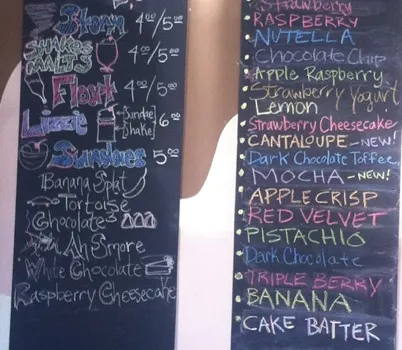 4.00/5.00
SHAKES
MALTS 4.00/5.00
Float 4.00/5.00
Lizzie Sundae
Shake 6.00
Sundaes 5.00
Banana Split
Tortoise
Chocolate³
Ah S'more
White Chocolate
Raspberry Cheesecake
Strawberry
RASPBERRY
NUTELLA
Chocolate Chip
Apple Raspberry
Strawberry Yogurt
Lemon
Strawberry Cheesecake
CANTALOUPE - NEW!
Dark Chocolate Toffee
MOCHA - NEW!
APPLE CRISP
RED VELVET
PISTACHIO
Dark Chocolate
TRIPLE BERRY
BANANA
CAKE BATTER